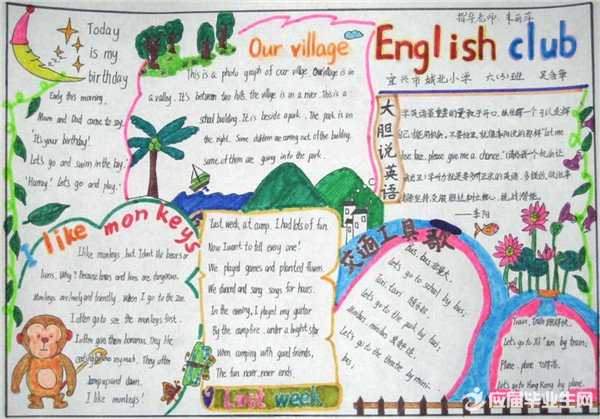 Today
is my
birthday
Early this morning,
Mum and Dad come to say.
"It's your birthday!
Let's go and swim in the bay."
"Hurray! Let's go and play."
Our village
This is a photo graph of our village. Our village is in
a valley. It's between two hills. the village is on a river. This is a
school building. It's is beside a park. The park is on
the right. Some children are coming out of the building.
some of them are going into the park.
指导老师
English club
宜兴市城北小学 六(3)班
大胆说英语
学英语最重要的是敢于开口,
me please give me a chance."
——李阳
I like monkeys
I like monkeys, but I don't like bears or
lions. Why? Because bears and lions are dangerous.
Monkeys are lovely and friendly. When I go to the zoo.
I often go to see the monkeys first.
I often give them bananas. They like
eating bananas very much. They often
jump up and down.
I like monkeys!
Last week, at camp. I had lots of fun.
Now I want to tell every one!
We played games and planted flowers.
We danced and sang songs for hours.
In the evening, I played my guitar
By the campfire, under a bright star
When camping with good friends,
The fun never, never ends
Last week
交通工具歌
Bus, bus
Let's go to school by bus;
Taxi, taxi
Let's go to the park by taxi;
Minibus, minibus
Let's go to the theatre by mini-
bus;
Train, train
Let's go to Xi'an by train;
Plane, plane
Let's go to Hong Kong by plane.
应届毕业生网